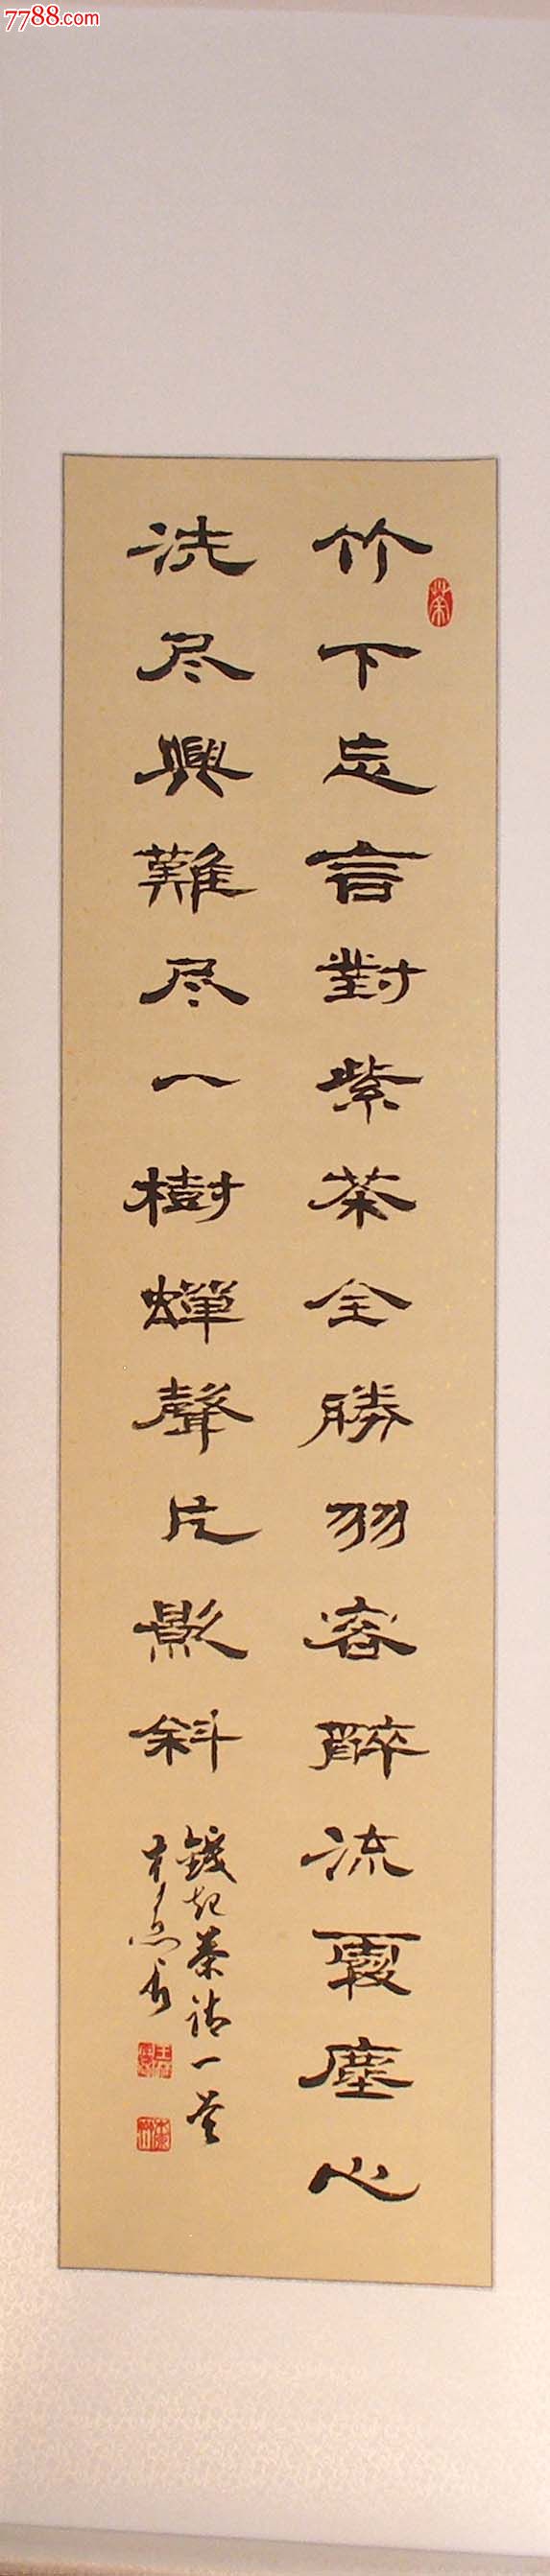 7788.com
竹下忘言對紫茶全勝羽客醉流霞塵心
洗尽興難尽一樹蟬聲片影斜
錢起茶詩一首